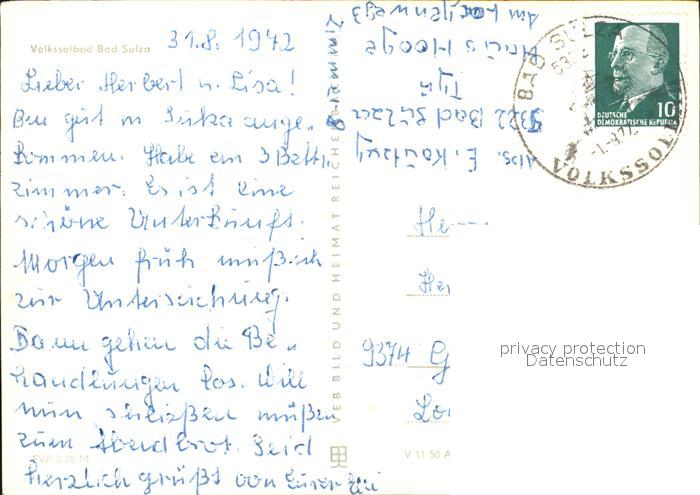 Volkssolbad Bad Sulza
31.8. 1972
Lieber Herbert u. Lisa!
Bin gut in Sulza ange-
kommen. Habe ein 3 Bett-
zimmer. Es ist eine
schöne Unterkunft.
Morgen früh muß ich
zur Untersuchung.
Dann gehen die Be-
handlungen los. Will
nun schließen müßen
zum Abendbrot. Seid
herzlich grüßt von Eurer
EVP 0,25 M
VEB BILD UND HEIMAT REICHENBACH
V 11 50 A
Abs. E.
5322 Bad Sulza
Haus Hooge
BAD SULZA
532
VOLKSSOL
DEUTSCHE
DEMOKRATISCHE REPUBLIK
10
He
Her
9374 G
privacy protection
Datenschutz